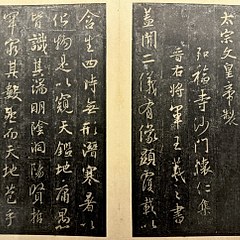 太宗文皇帝製
弘福寺沙門懷仁集
晉右將軍王羲之書
蓋聞二儀有像顯覆載以
含生四時無形潛寒暑以
化物是以窺天鑑地庸愚
皆識其端明陰洞陽賢哲
罕窮其數然而天地苞乎